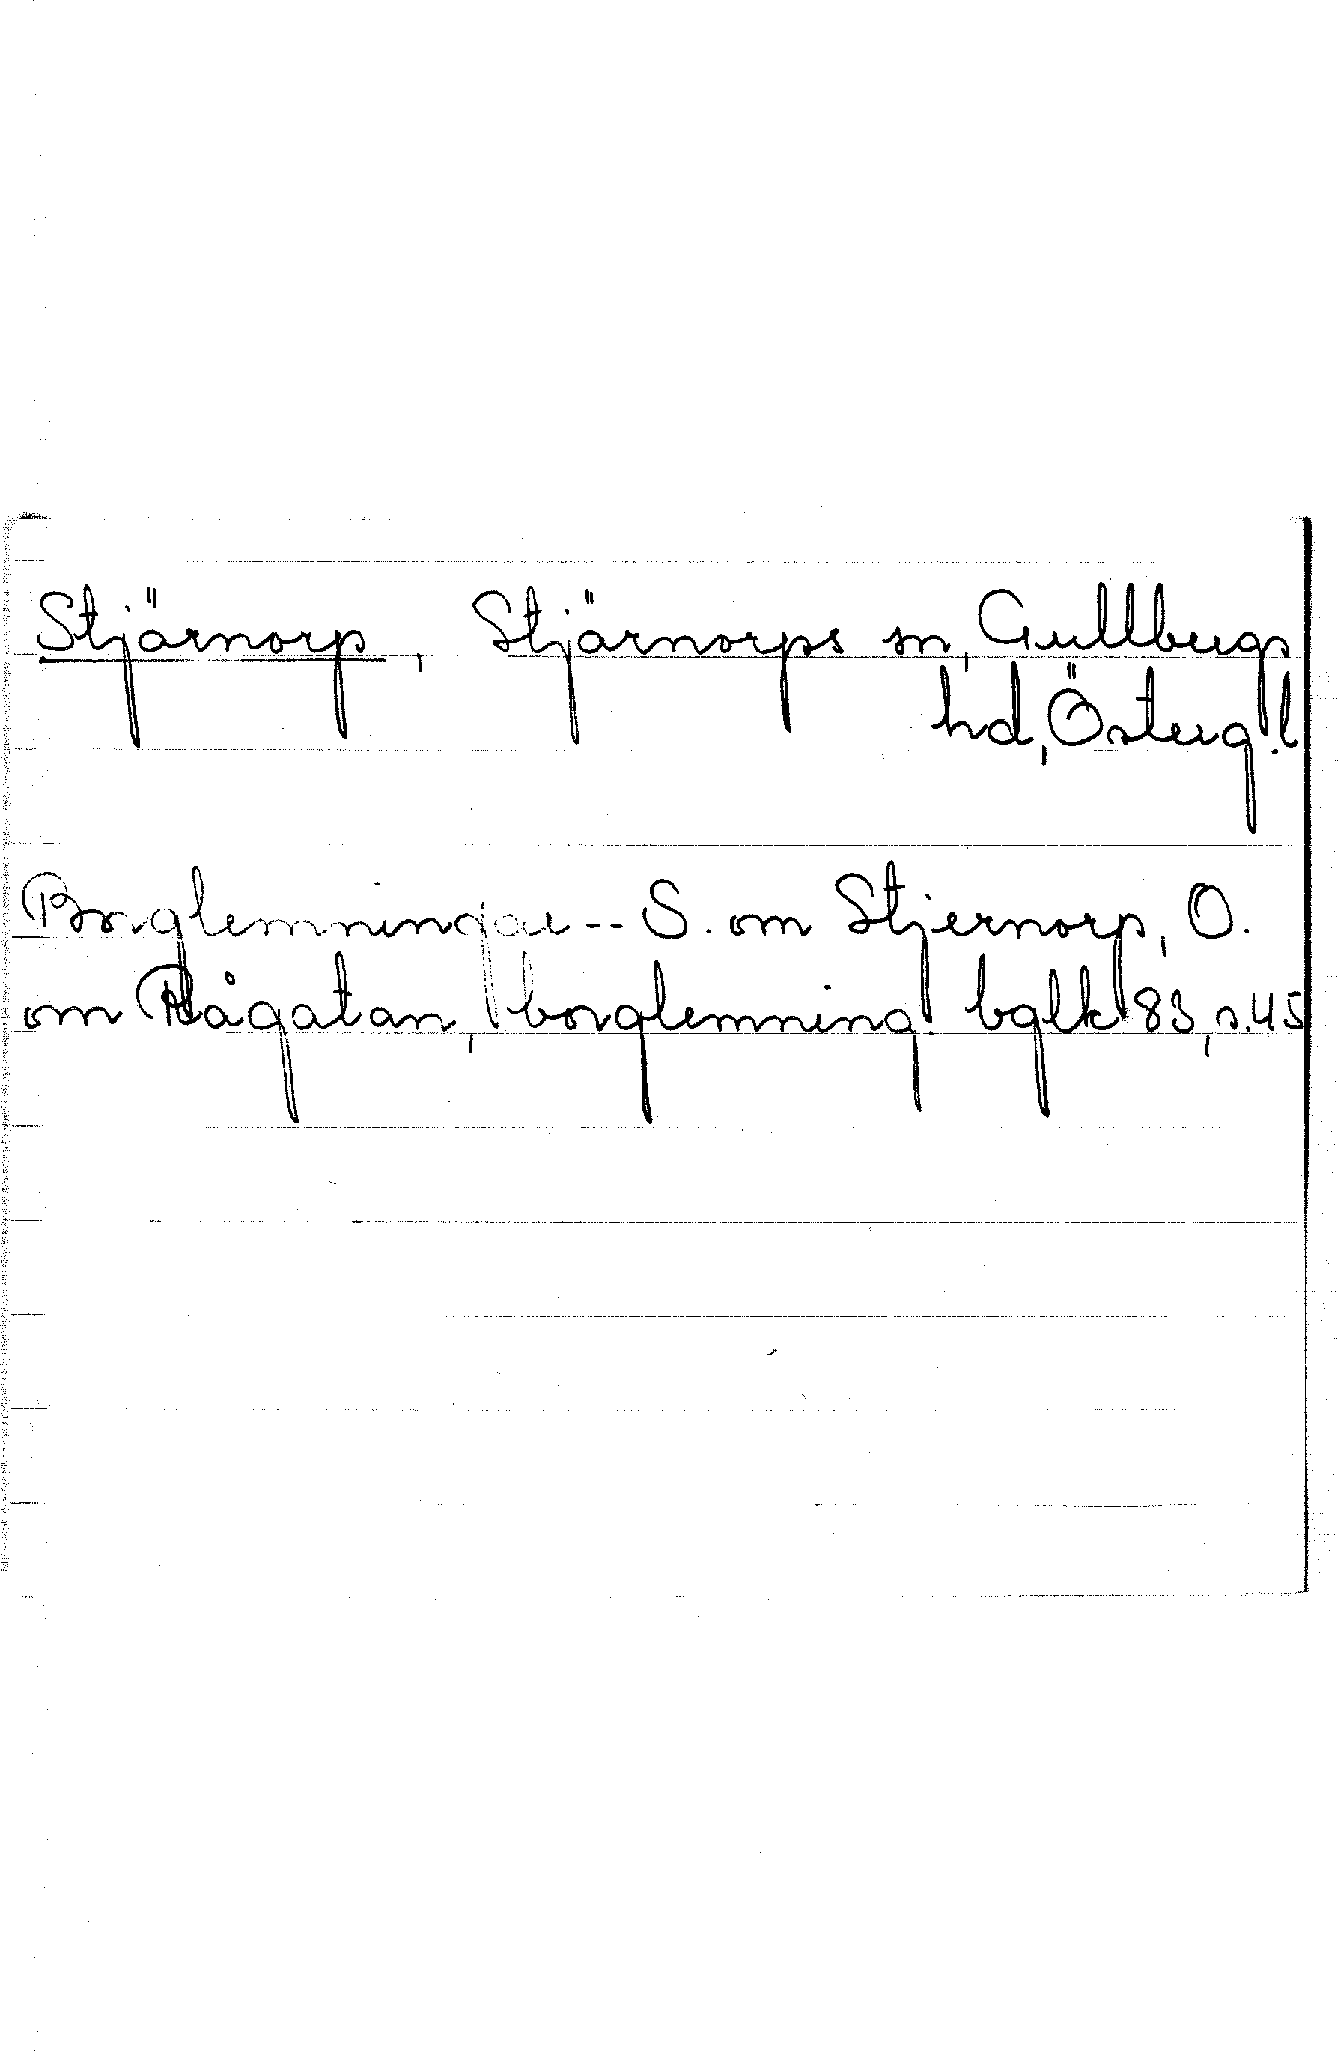 Stjärnorp, Stjärnorps sn, Gullbergs
hd, Österg. l
Borglemningar -- S. om Stjernorp, O.
om Rågatan, borglemning. bglk 83, s. 45